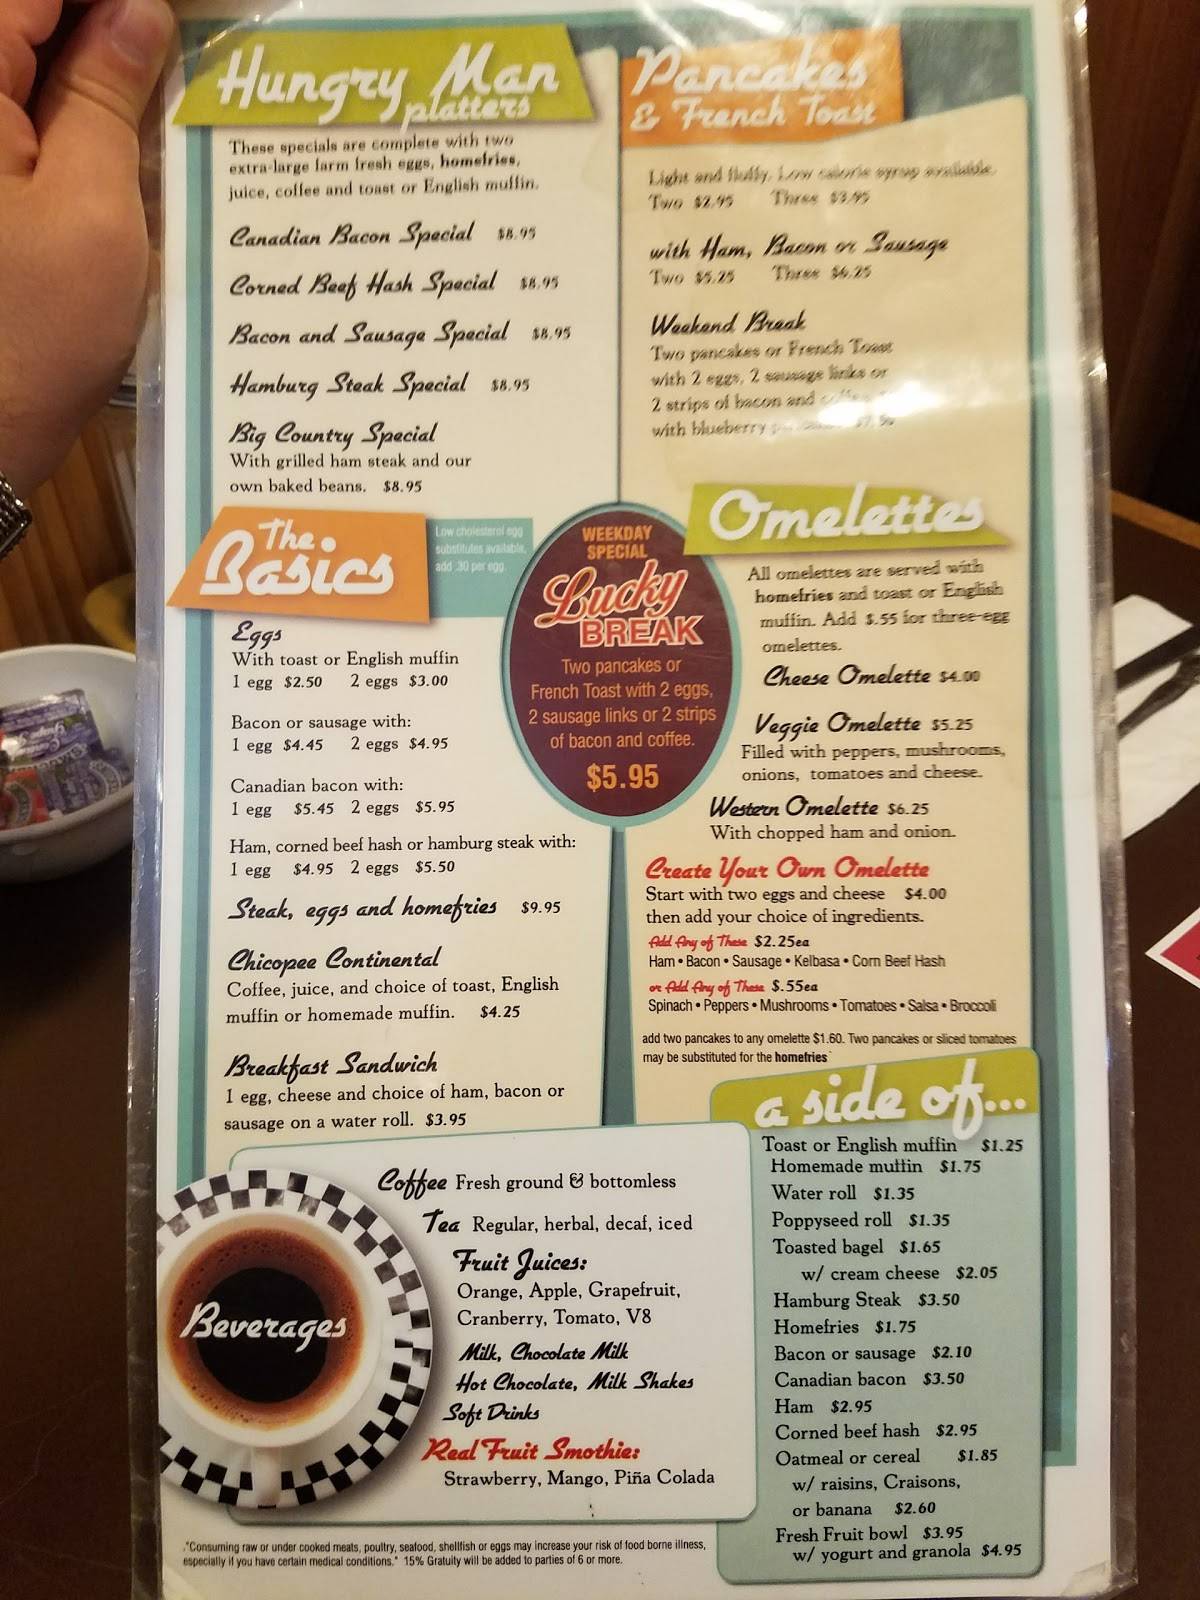 Hungry Man
platters
These specials are complete with two
extra-large farm fresh eggs, homefries,
juice, coffee and toast or English muffin.
Canadian Bacon Special $8.95
Corned Beef Hash Special $8.95
Bacon and Sausage Special $8.95
Hamburg Steak Special $8.95
Big Country Special
With grilled ham steak and our
own baked beans. $8.95
Pancakes
& French Toast
Light and fluffy. Low calorie syrup available.
Two $2.95 Three $3.95
with Ham, Bacon or Sausage
Two $5.25 Three $6.25
Weekend Break
Two pancakes or French Toast
with 2 eggs, 2 sausage links or
2 strips of bacon and
with blueberry
The
Basics
Low cholesterol egg
substitutes available,
add .30 per egg.
Eggs
With toast or English muffin
1 egg $2.50 2 eggs $3.00
Bacon or sausage with:
1 egg $4.45 2 eggs $4.95
Canadian bacon with:
1 egg $5.45 2 eggs $5.95
Ham, corned beef hash or hamburg steak with:
1 egg $4.95 2 eggs $5.50
Steak, eggs and homefries $9.95
Chicopee Continental
Coffee, juice, and choice of toast, English
muffin or homemade muffin. $4.25
Breakfast Sandwich
1 egg, cheese and choice of ham, bacon or
sausage on a water roll. $3.95
WEEKDAY
SPECIAL
Lucky
BREAK
Two pancakes or
French Toast with 2 eggs,
2 sausage links or 2 strips
of bacon and coffee.
$5.95
Omelettes
All omelettes are served with
homefries and toast or English
muffin. Add $.55 for three-egg
omelettes.
Cheese Omelette $4.00
Veggie Omelette $5.25
Filled with peppers, mushrooms,
onions, tomatoes and cheese.
Western Omelette $6.25
With chopped ham and onion.
Create Your Own Omelette
Start with two eggs and cheese $4.00
then add your choice of ingredients.
Add Any of These $2.25ea
Ham • Bacon • Sausage • Kelbasa • Corn Beef Hash
or Add Any of These $.55ea
Spinach • Peppers • Mushrooms • Tomatoes • Salsa • Broccoli
add two pancakes to any omelette $1.60. Two pancakes or sliced tomatoes
may be substituted for the homefries
a side of...
Toast or English muffin $1.25
Homemade muffin $1.75
Water roll $1.35
Poppyseed roll $1.35
Toasted bagel $1.65
w/ cream cheese $2.05
Hamburg Steak $3.50
Homefries $1.75
Bacon or sausage $2.10
Canadian bacon $3.50
Ham $2.95
Corned beef hash $2.95
Oatmeal or cereal $1.85
w/ raisins, Craisons,
or banana $2.60
Fresh Fruit bowl $3.95
w/ yogurt and granola $4.95
Beverages
Coffee Fresh ground & bottomless
Tea Regular, herbal, decaf, iced
Fruit Juices:
Orange, Apple, Grapefruit,
Cranberry, Tomato, V8
Milk, Chocolate Milk
Hot Chocolate, Milk Shakes
Soft Drinks
Real Fruit Smothie:
Strawberry, Mango, Piña Colada
"Consuming raw or under cooked meats, poultry, seafood, shellfish or eggs may increase your risk of food borne illness,
especially if you have certain medical conditions." 15% Gratuity will be added to parties of 6 or more.